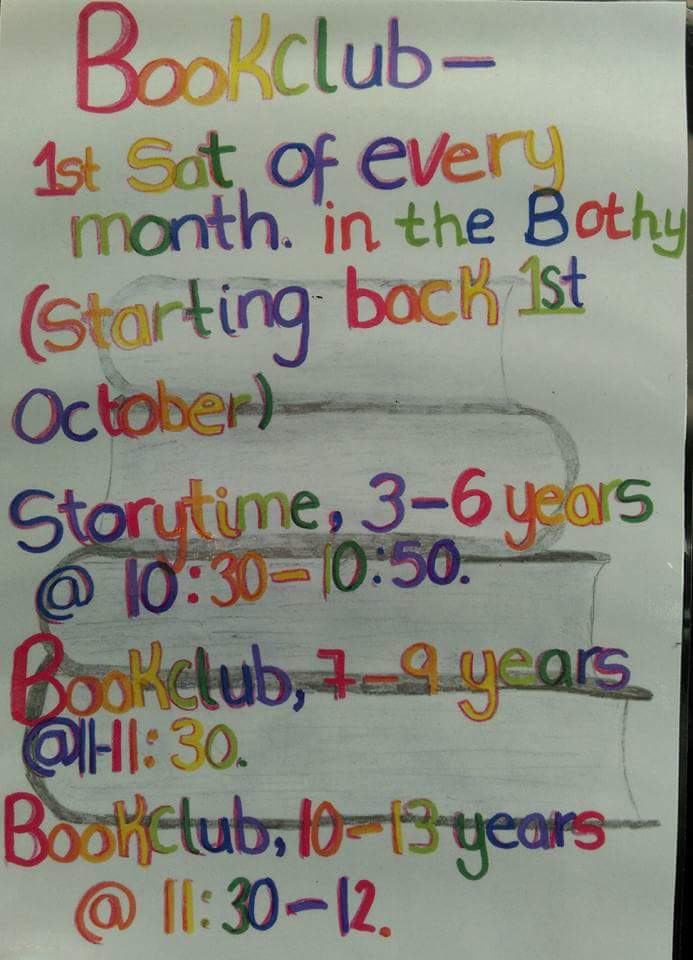 Bookclub-
1st Sat of every
month. in the Bothy
(Starting back 1st
October)
Storytime, 3-6 years
@ 10:30-10:50.
Bookclub, 7-9 years
@11-11:30.
Bookclub, 10-13 years
@ 11:30-12.